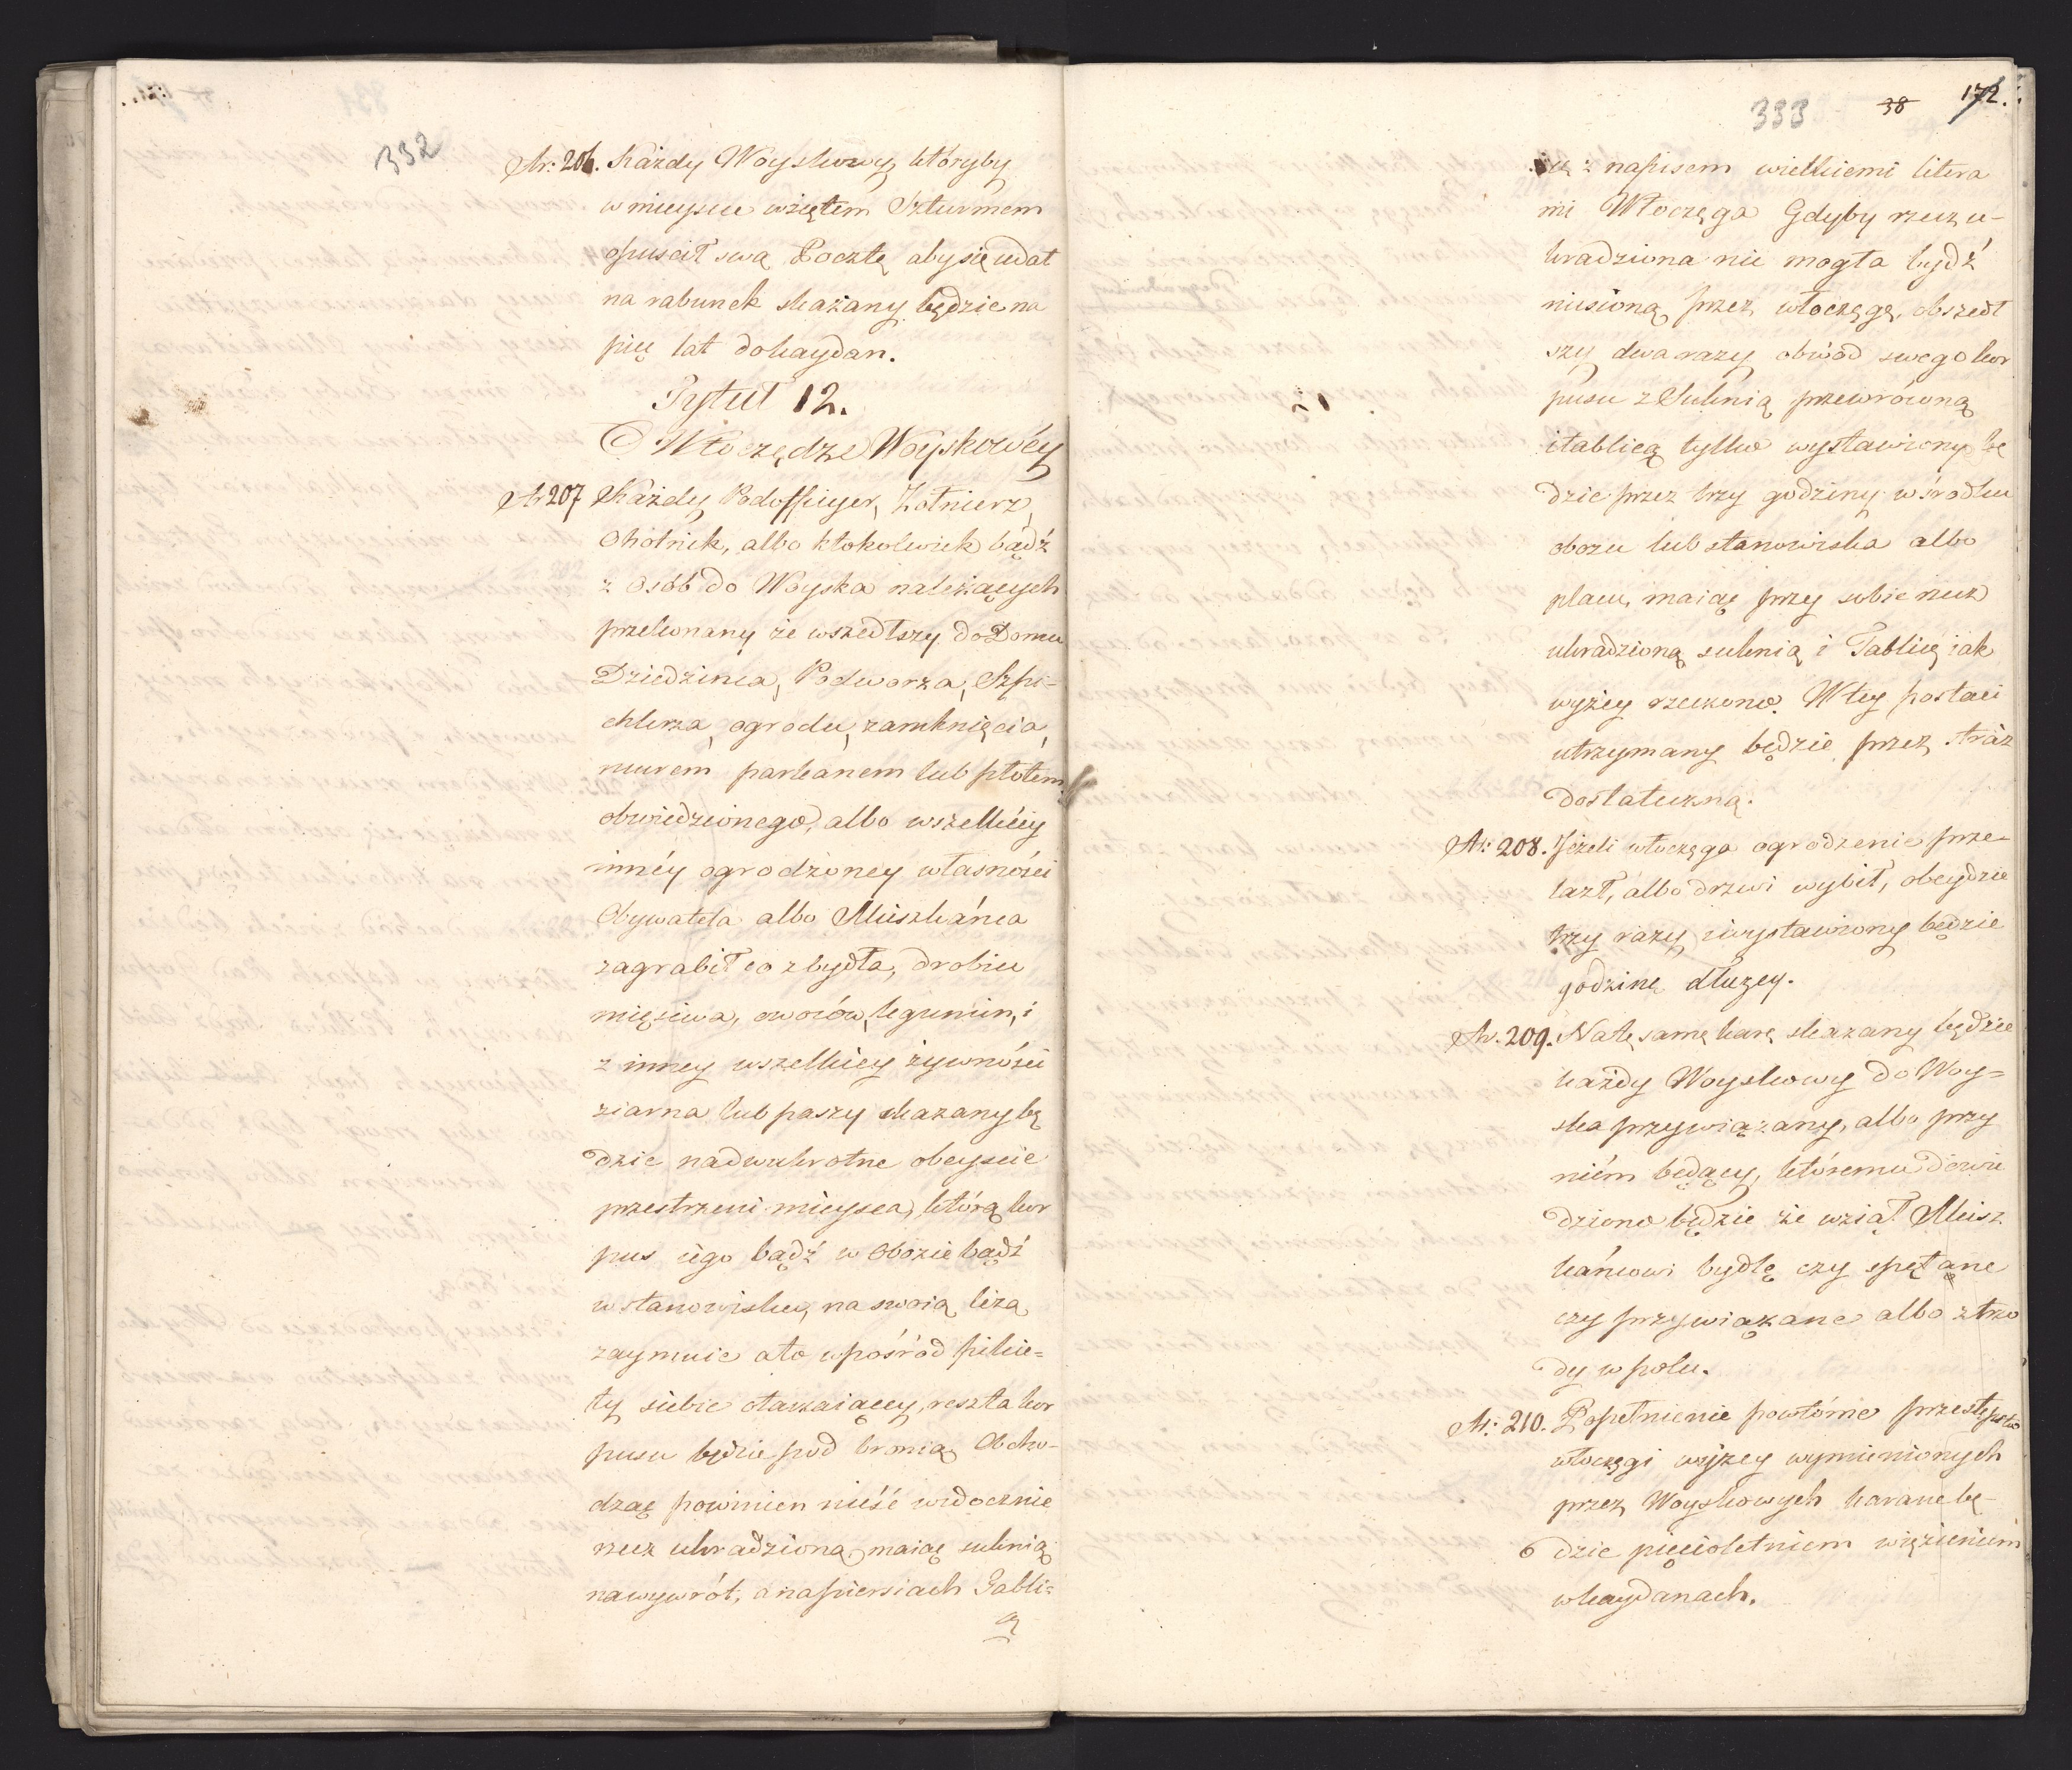 332
Ar: 206. Każdy Woyskowy, któryby
w mieyscu wziętem Szturmem
opuscił swą Pocztę aby się udał
na rabunek skazany będzie na
pięć lat do kaydan.
Tytuł 12.
O Włoczędze Woyskowéy
Ar 207 Każdy Podofficyer, Żołnierz,
Ohotnik, albo ktokolwiek bądź
z osób do Woyska należących
przekonany że wszedłszy do Domu
Dziedzinca, Podworza, Szpi-
chlerza, ogrodu, zamknięcia,
murem parkanem lub płotem
obwiedzionego, albo wszelkiéy
innéy ogrodzoney własności
Obywatela albo Mieszkánca
zagrabił co z bydła, drobiu
mięsiwa, owoców, legumin, i
z inney wszelkiey żywności
ziarna lub paszy skazany bę
dzie na dwukrotne obeyscie
przestrzeni mieysca, którą kor
pus iego bądź w Obozie bądź
w stanowisku, na swoią leżą
zaymuie a to wpośród pikie=
ty siebie otaczaiącey, reszta kor
pusu będzie pod bronią Obcho-
dząc powinien nieść widocznie
rzecz ukradzioną, maiąc suknią
na wywrót, a na piersiach Tabli=
cę
333 38 172.
cę z napisem wielkiemi litera
mi Włoczęga Gdyby rzecz u-
kradziona nie mogła bydź
niesioną przez włoczęgę, obszedł
szy dwa razy obwód swego kor
pusu z Suknią przewróconą
i tablicą tylko wystawiony bę
dzie przez trzy godziny w środku
obozu lub stanowiska albo
placu, maiąc przy sobie rzecz
ukradzioną suknią i Tablicę iak
wyżey rzeczono. W tey postaci
utrzymany będzie przez straż
dostateczną.
Ar: 208. Jeżeli włoczęga ogrodzenie prze-
lazł, albo drzwi wybił, obeydzie
trzy razy i wystawiony będzie
godzinę dłużey.
Ar. 209. Na tę samę karę skazany będzie
każdy Woyskowy do Woy=
ska przywiązany, albo przy
niém będący, któremu dowie
dziono będzie że wziął Miesz
kańcowi bydlę czy spętane
czy przywiązane albo z trzo
dy w polu.
Ar: 210. Popełnienie powtórne przestępstw
włoczęgi wyżey wymienionych
przez Woyskowych karane bę-
dzie pięcioletniem więzieniem
w kaydanach.